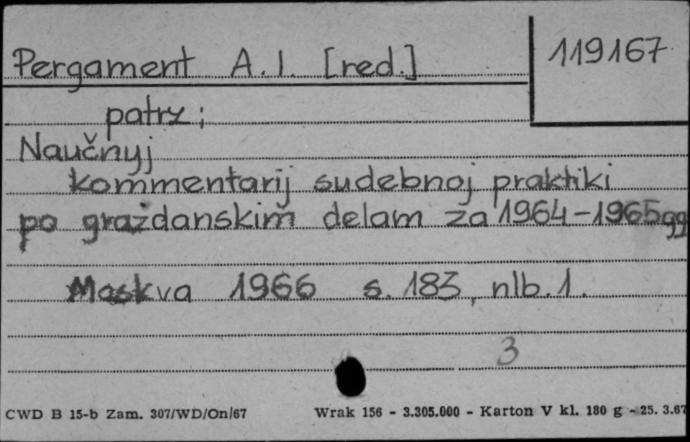 Pergament A.I. [red.]
119167
patrz;
Naučnyj
kommentarij sudebnoj praktiki
po graždanskim delam za 1964-1965gg
Moskva 1966 s. 183, nlb. 1.
3
CWD B 15-b Zam. 307/WD/On/67 Wrak 156 - 3.305.000 - Karton V kl. 180 g - 25. 3.67